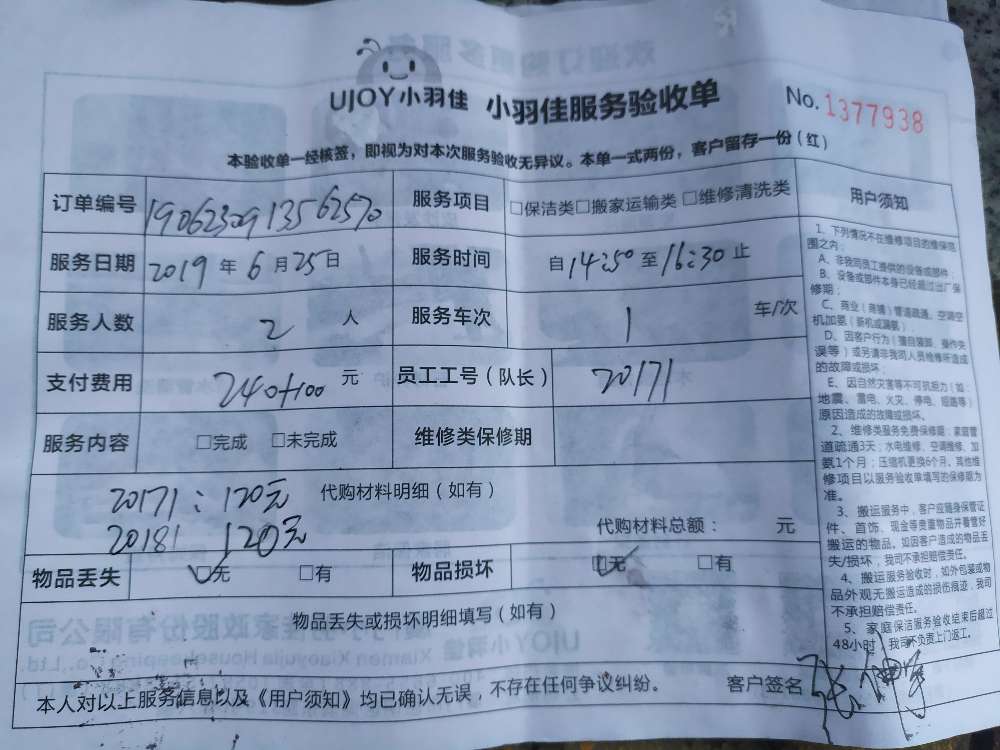 UJOY小羽佳 小羽佳服务验收单 No. 1377938
本验收单一经核签，即视为对本次服务验收无异议。本单一式两份，客户留存一份（红）
订单编号 1906230913562570 服务项目 □保洁类□搬家运输类 □维修清洗类
服务日期 2019 年 6 月 25 日 服务时间 自 14:50 至 16:30 止
服务人数 2 人 服务车次 1 车/次
支付费用 240+100 元 员工工号（队长） 20171
服务内容 □完成 □未完成 维修类保修期
20171：120元 代购材料明细（如有）
20181 120元 代购材料总额： 元
物品丢失 □无 □有 物品损坏 □无 □有
物品丢失或损坏明细填写（如有）
本人对以上服务信息以及《用户须知》均已确认无误，不存在任何争议纠纷。 客户签名
用户须知
1、下列情况不在维修项目的维保范
围之内：
A、非我司员工提供的设备或部件；
B、设备或部件本身已经超过出厂保
修期；
C、商业（商铺）管道疏通、空调空
机加氨（新机或漏氨）；
D、因客户行为（擅自装卸、操作失
误等）或另请非我司人员检修所造成
的故障或损坏；
E、因自然灾害等不可抗拒力（如：
地震、雷电、火灾、停电、短路等）
原因造成的故障或损坏。
2、维修类服务免费保修期：家庭管
道疏通3天；水电维修、空调维修、加
氨1个月；压缩机更换6个月。其他维
修项目以服务验收单填写的保修期为
准。
3、搬运服务中，客户应随身保管证
件、首饰、现金等贵重物品并看管好
搬运的物品。如因客户造成的物品丢
失/损坏，我司不承担赔偿责任。
4、搬运服务验收时，如外包装或物
品外观无搬运造成的损伤痕迹，我司
不承担赔偿责任。
5、家庭保洁服务验收结束后超过
48小时，我司不负责上门返工。